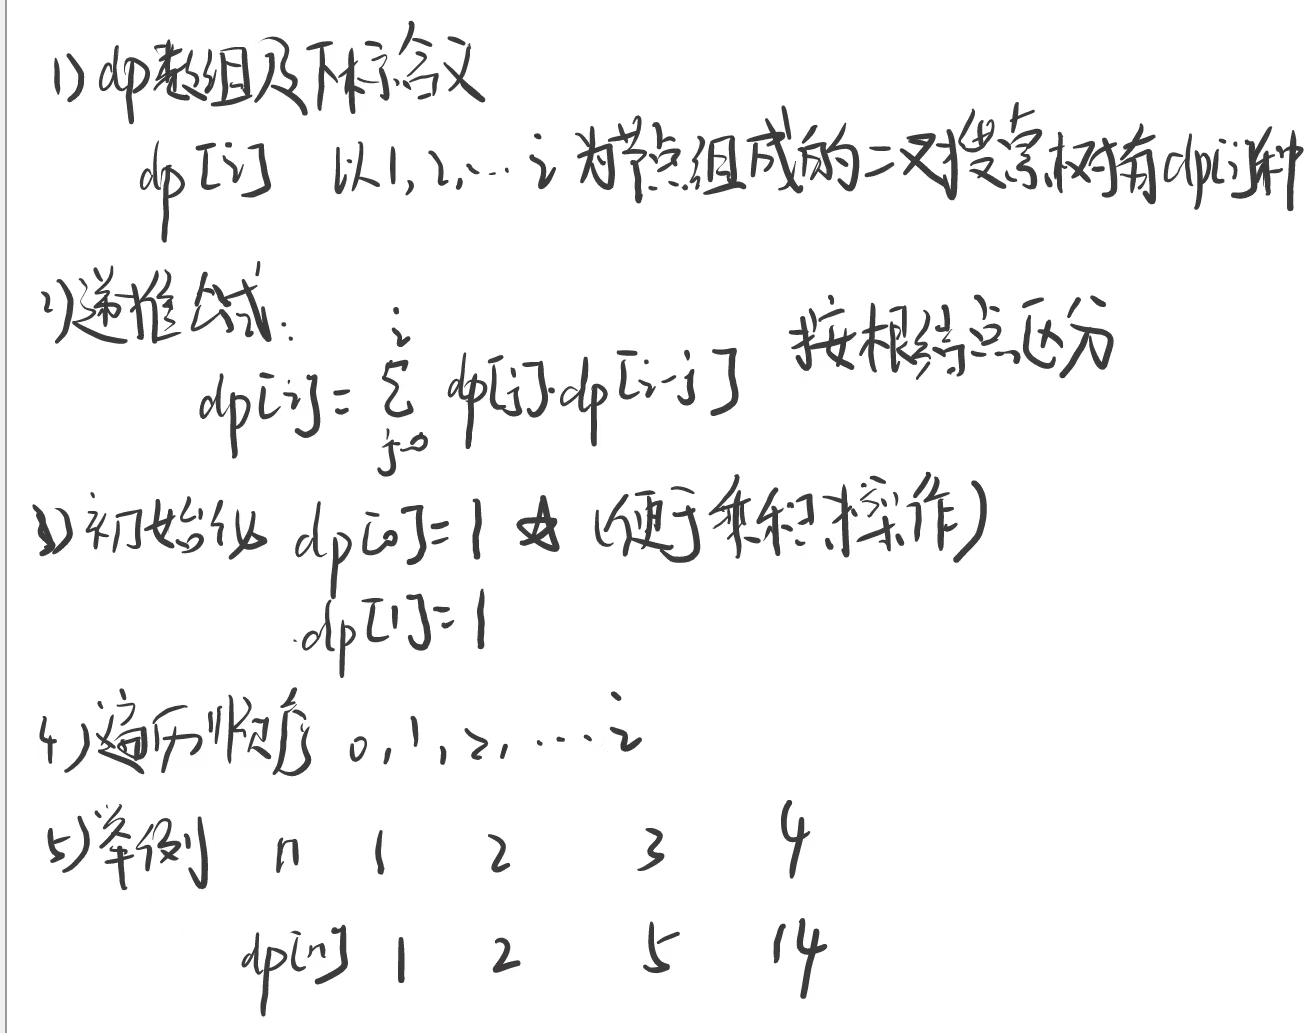 1) dp数组及下标含义
dp[i] 以1,2,…i 为节点组成的二叉搜索树有dp[i]种
2)递推公式:
dp[i]= i∑j=0 dp[j]·dp[i-j] 按根结点区分
3)初始化 dp[0]=1 ☆ (便于乘积操作)
dp[1]=1
4)遍历顺序 0,1,2,…i
5)举例 n 1 2 3 4
dp[n] 1 2 5 14